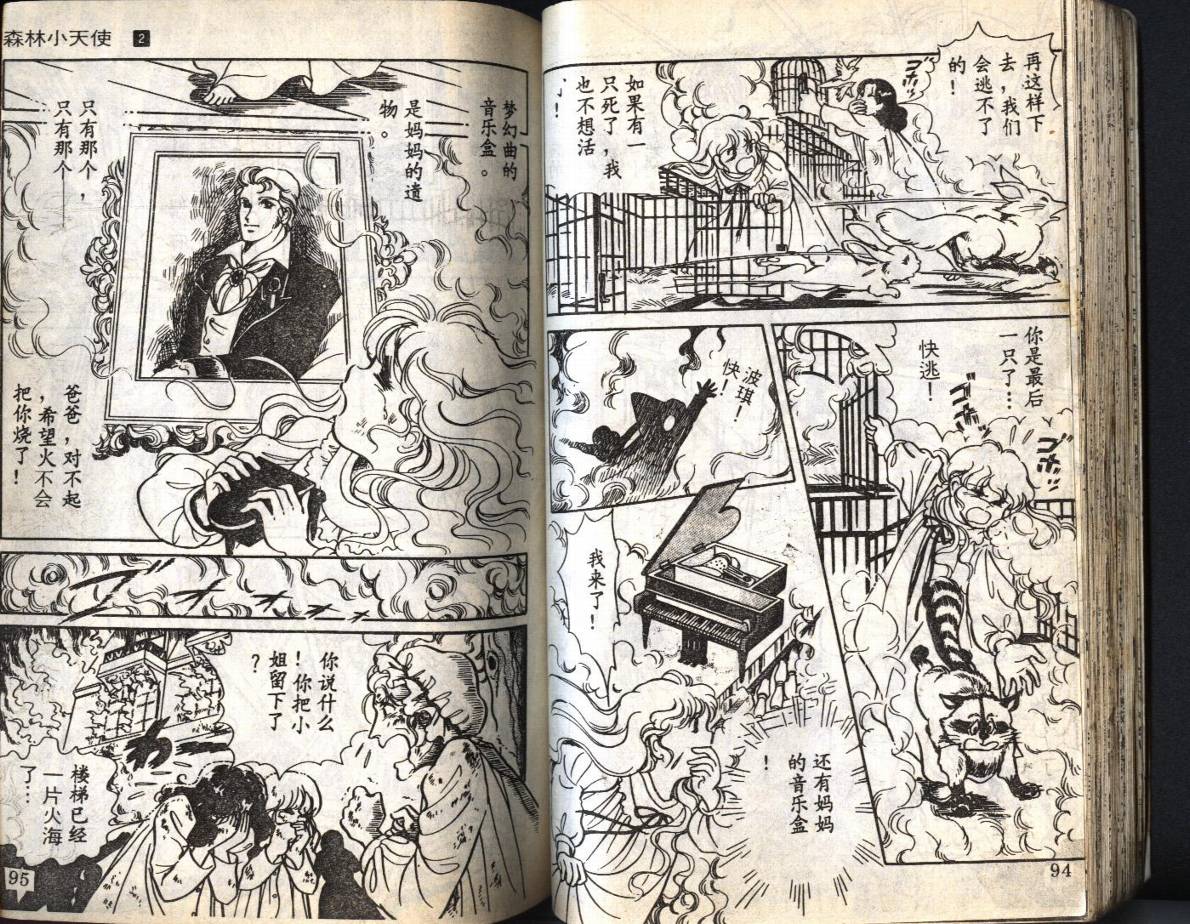 再这样下
去，我们
会逃不了
的！
ゴホッ
如果有一
只死了，我
也不想活
了！
你是最后
一只了…
快逃！
ゴホッ
ゴホッ
波琪！
快！
我来了！
还有妈妈
的音乐盒
！
94
森林小天使 2
梦幻曲的
音乐盒。
是妈妈的遗
物。
只有那个，
只有那个——
爸爸，对不起
，希望火不会
把你烧了！
你说什么
！你把小
姐留下了
？
わーー
楼梯已经
一片火海
了…
95